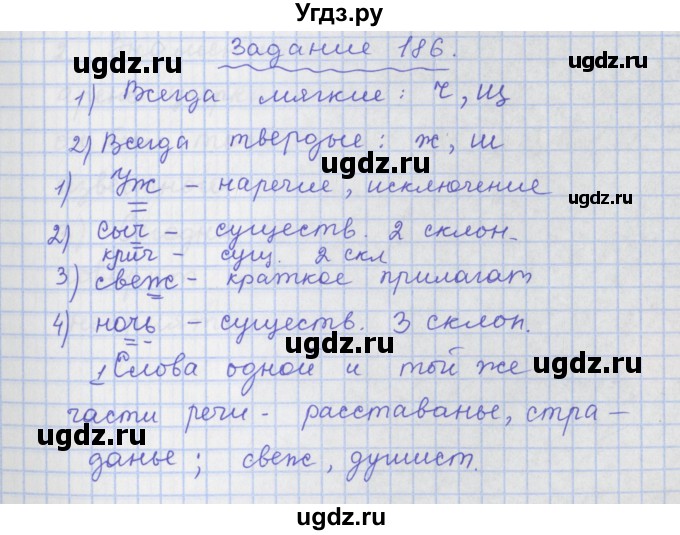 Угдз.ру
Задание 186.
ugdz.ru ugdz.ru
1) Всегда мягкие: ч, щ
2) Всегда твердые: ж, ш
ugdz.ru
1) Уж - наречие, исключение
ugdz.ru
2) сыч - существ. 2 склон.
крич - сущ. 2 скл
ugdz.ru
3) свеж - краткое прилагат
4) ночь - существ. 3 склон.
ugdz.ru
1 Слова одной и той же
части речи - расставанье, стра-
ugdz.ru
данье; свеж, душист.
ugdz.ru
ugdz.ru